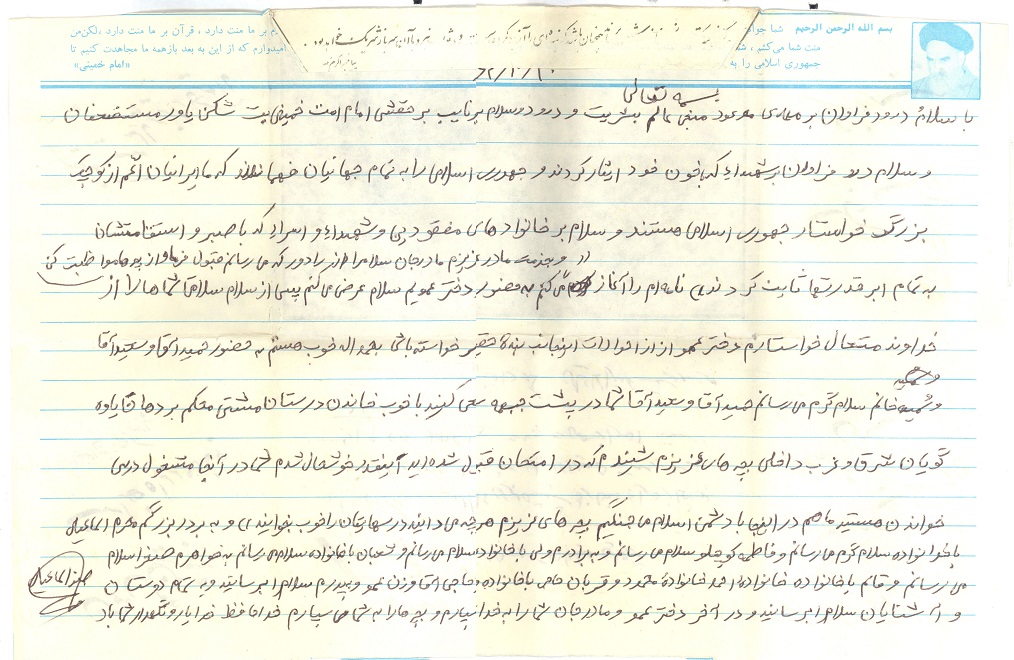 بسم الله الرحمن الرحیم
منت شما می‌کنم ، شما
جمهوری اسلامی را به
بر ما منت دارد ، قرآن بر ما منت دارد ، لکن من
امیدوارم که از این به بعد بازهمه ما مجاهدت کنیم تا
«امام خمینی»
۶۲/۲/۱۰
بسمه تعالی
با سلام و درود فراوان بر مهدی موعود منجی عالم بشریت و درود و سلام بر نایب بر حقش امام امت خمینی بت شکن یاور مستضعفان
و سلام و درود فراوان بر شهداء که با خون خود ایثار کردند و جمهوری اسلامی را به تمام جهانیان فهماندند که ما ایرانیان اعم از کوچک
بزرگ خواستار جمهوری اسلامی هستند و سلام بر خانواده‌های مفقودین و شهداء و اسراء که با صبر و استقامتشان
و خدمت مادر عزیزم مادرجان سلام مرا از راه دور که می رسانم قبول فرما و از بچه ها مواظبت کنی
به تمام ابر قدرتها ثابت کردند نامه‌ام را آغاز می کنم به حضور دختر عمویم سلام عرض می کنم پس از سلام سلامتی شماها را از
خداوند متعال خواستارم دختر عمو از احوالات اینجانب بنده حقیر خواسته باشی بحمداله خوب هستم به حضور حمید آقا و سعید آقا
و سمیه خانم سلام گرم می رسانم حمید آقا و سعید آقا شما در پشت جبهه سعی کنید با خوب خواندن درستان مشتی محکم بر دهان یاوه
گویان شرق و غرب داخلی بچه های عزیزم شنیدم که در امتحان قبول شده اید آینقدر خوشحال شدم شما در آنجا مشغول درس
خواندن هستید ما هم در اینجا با دشمن اسلام می جنگیم بچه های عزیزم هر چه می دانند درسهایتان را خوب بخوانید و به برادر بزرگم محرم اسماعیلی
با خانواده سلام گرم می رسانم و فاطمه کوچلو سلام می رسانم و به برادرم ولی با خانواده سلام می رسانم و شعبان با خانواده سلام می رسانم به خواهرم صغرا سلام
می رسانم و قائم با خانواده خانوادۀ احمد خانوادۀ محمد و قربان حاجی با خانواده و حاجی آقا و زن عمو و پدرم سلام برسانید و به تمام دوستان
و آشنایان سلام برسانید و در آخر دختر عمو و مادرجان شما را به خدا می سپارم و بچه ها را به شما می سپارم خدا حافظ خدا یار و نگهدار شما باد